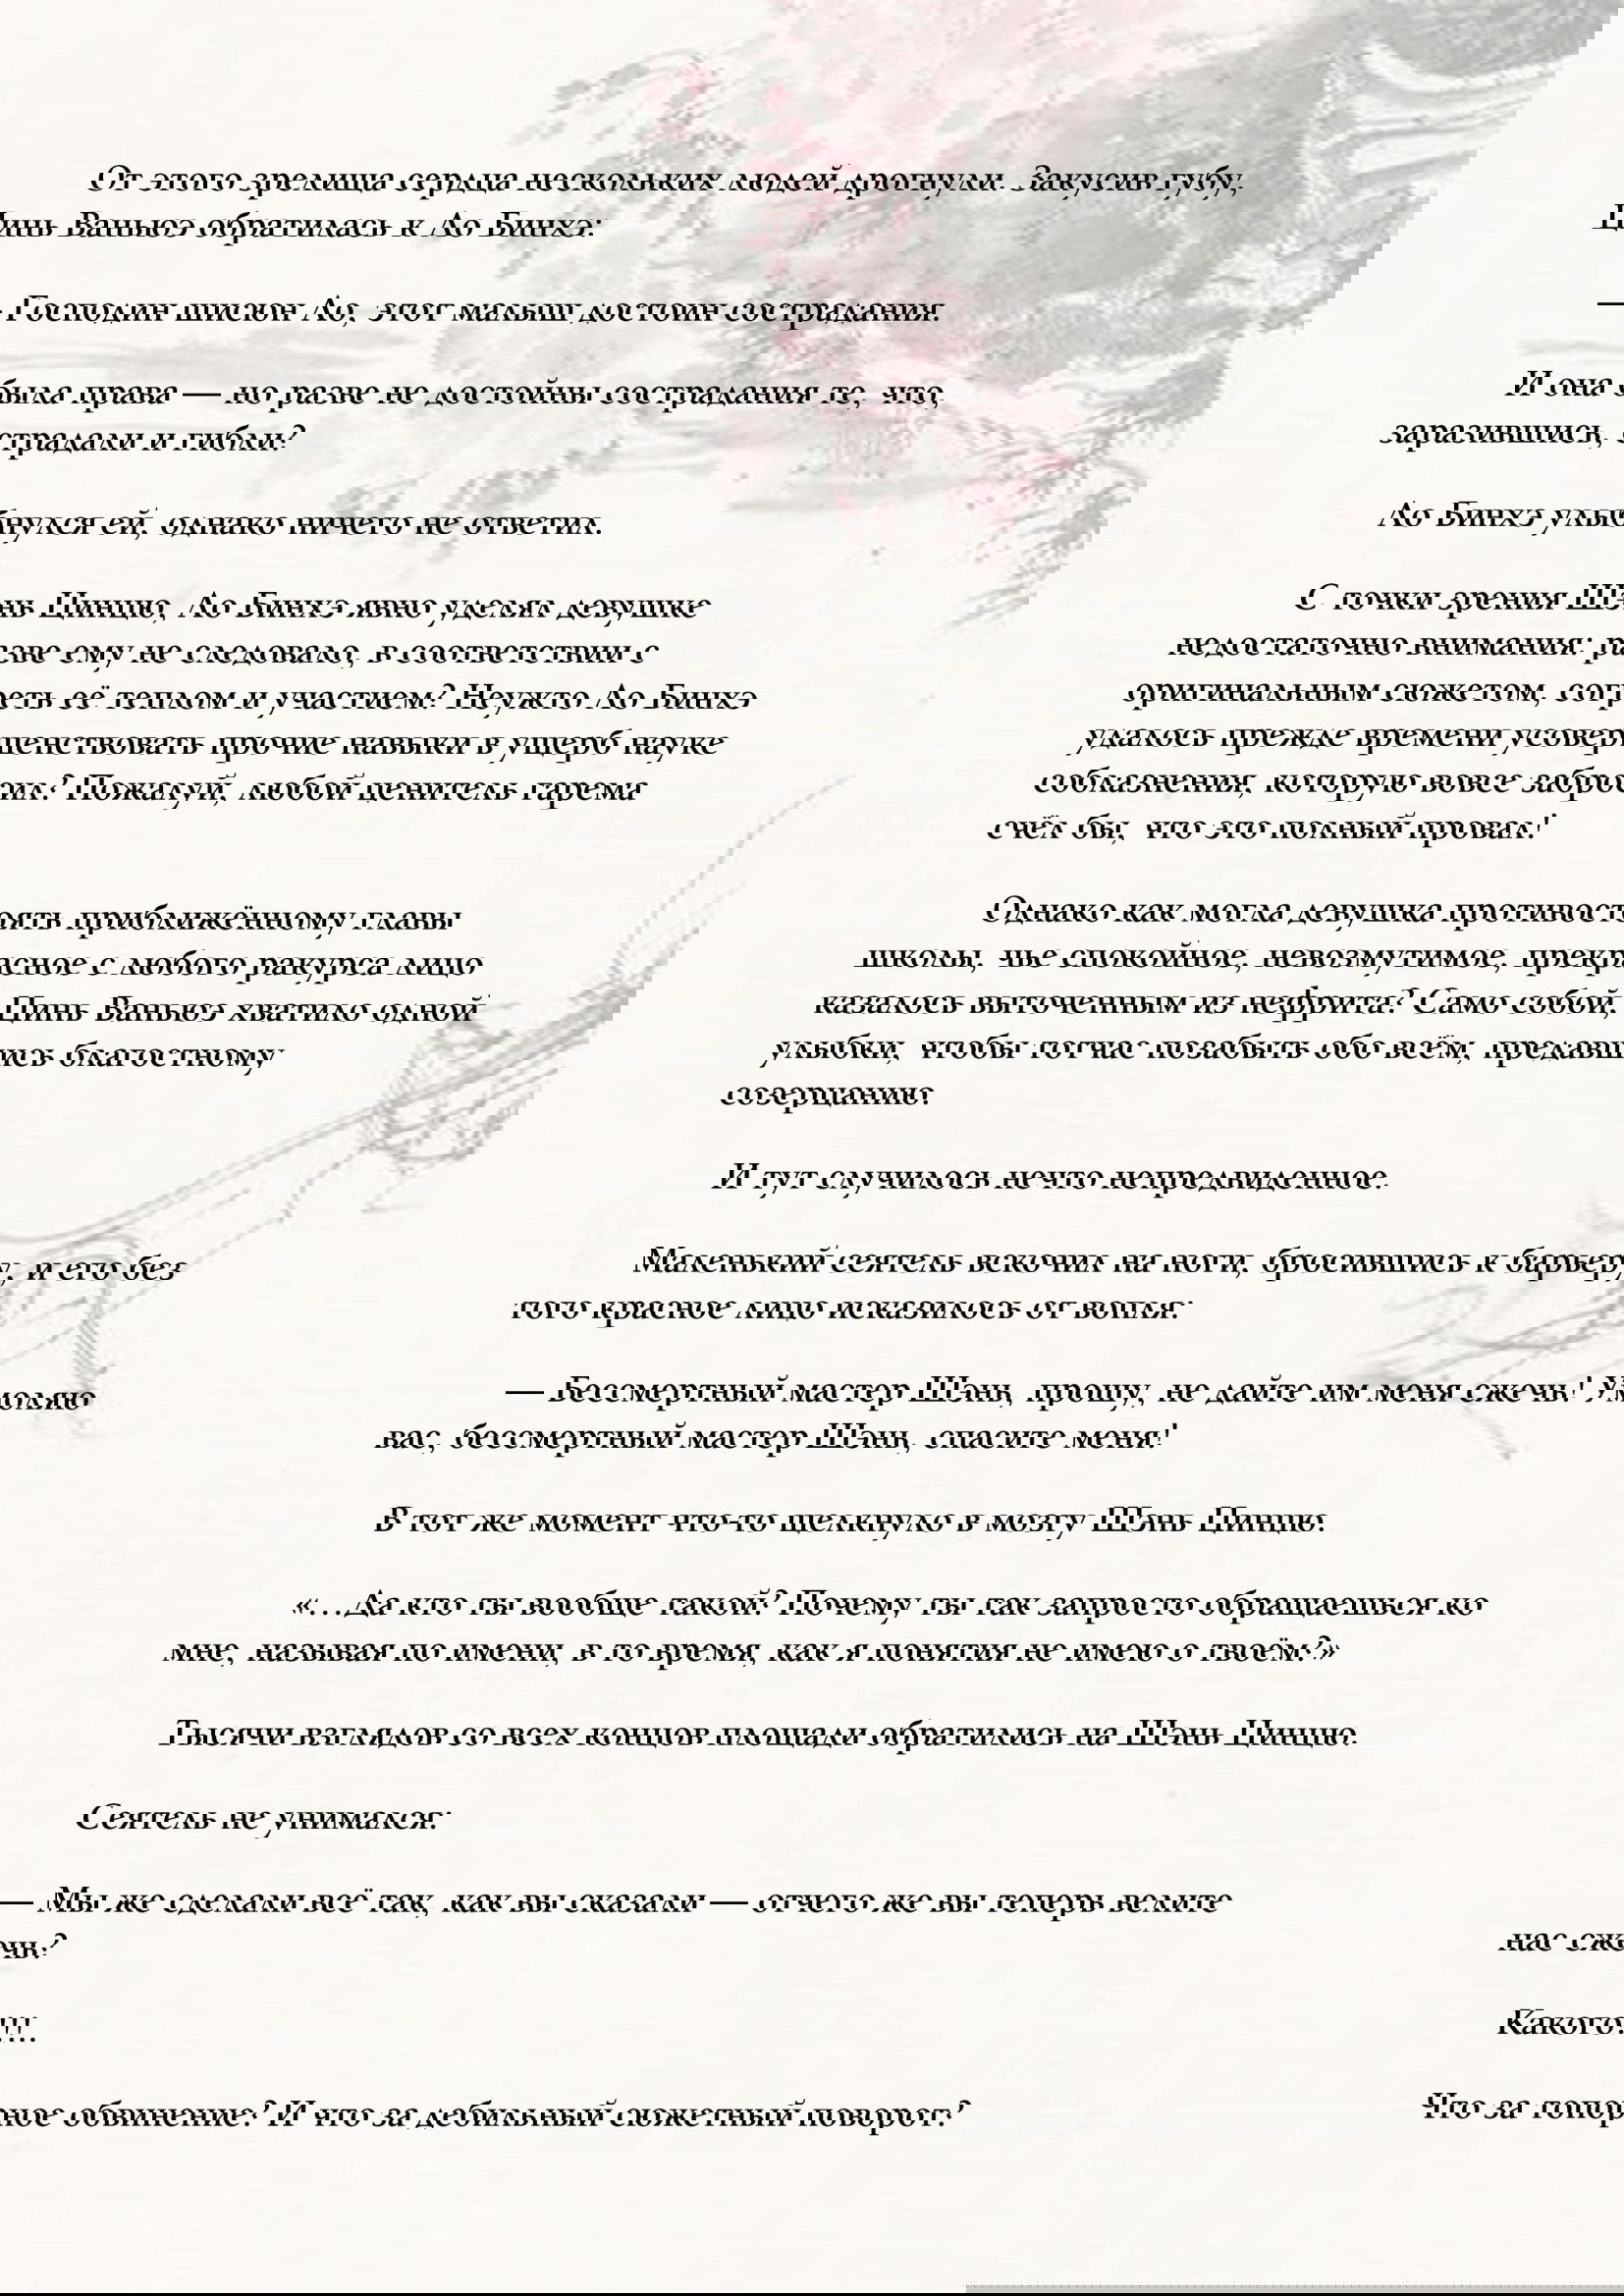 От этого зрелища сердца нескольких людей дрогнули. Закусив губу,
Цинь Ваньюэ обратилась к Ло Бинхэ:
— Господин шисюн Ло, этот малыш достоин сострадания.
И она была права — но разве не достойны сострадания те, что,
заразившись, страдали и гибли?
Ло Бинхэ улыбнулся ей, однако ничего не ответил.
С точки зрения Шэнь Цинцю, Ло Бинхэ явно уделял девушке
недостаточно внимания: разве ему не следовало, в соответствии с
оригинальным сюжетом, согреть её теплом и участием? Неужто Ло Бинхэ
удалось прежде времени усовершенствовать прочие навыки в ущерб науке
соблазнения, которую вовсе забросил? Пожалуй, любой ценитель гарема
счёл бы, что это полный провал!
Однако как могла девушка противостоять приближённому главы
школы, чье спокойное, невозмутимое, прекрасное с любого ракурса лицо
казалось выточенным из нефрита? Само собой, Цинь Ваньюэ хватило одной
улыбки, чтобы тотчас позабыть обо всём, предавшись благостному
созерцанию.
И тут случилось нечто непредвиденное.
Маленький сеятель вскочил на ноги, бросившись к барьеру, и его без
того красное лицо исказилось от вопля:
— Бессмертный мастер Шэнь, прошу, не дайте им меня сжечь! Умоляю
вас, бессмертный мастер Шэнь, спасите меня!
В тот же момент что-то щелкнуло в мозгу Шэнь Цинцю.
«…Да кто ты вообще такой? Почему ты так запросто обращаешься ко
мне, называя по имени, в то время, как я понятия не имею о твоём?»
Тысячи взглядов со всех концов площади обратились на Шэнь Цинцю.
Сеятель не унимался:
— Мы же сделали всё так, как вы сказали — отчего же вы теперь велите
нас сжечь?
Какого!!!.
Что за топорное обвинение? И что за дебильный сюжетный поворот?